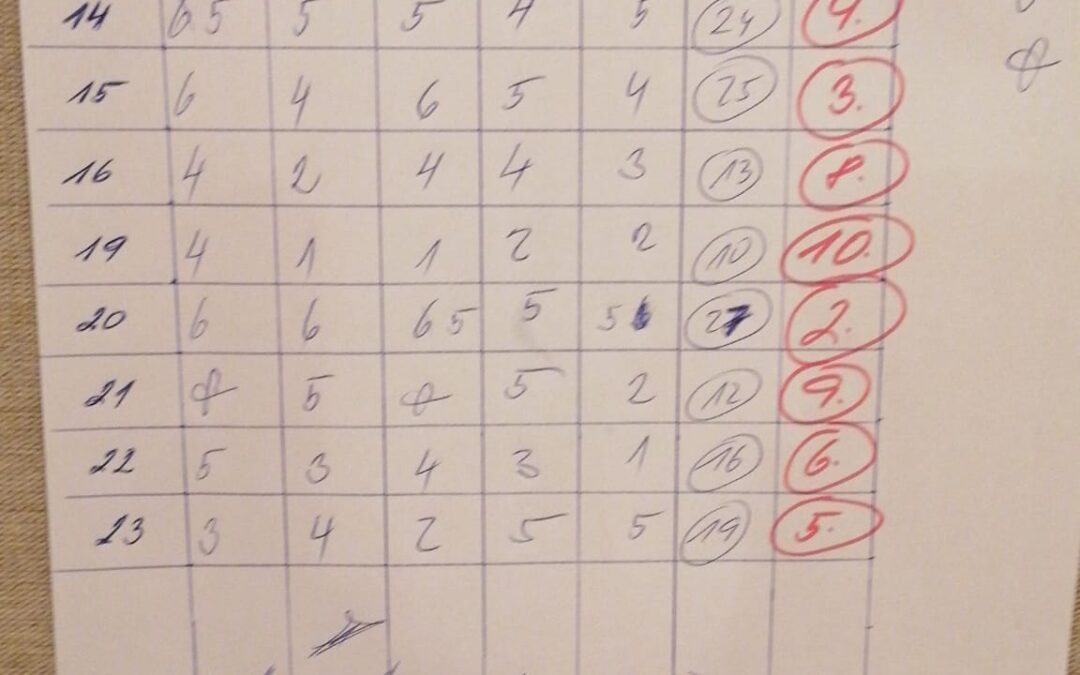 14 6 5 5 5 4 5 24 4.
15 6 4 6 5 4 25 3.
16 4 2 4 4 3 13 8.
19 4 1 1 2 2 10 10.
20 6 6 6 5 5 5 27 2.
21 5 5 2 12 9.
22 5 3 4 3 1 16 6.
23 3 4 2 5 5 19 5.